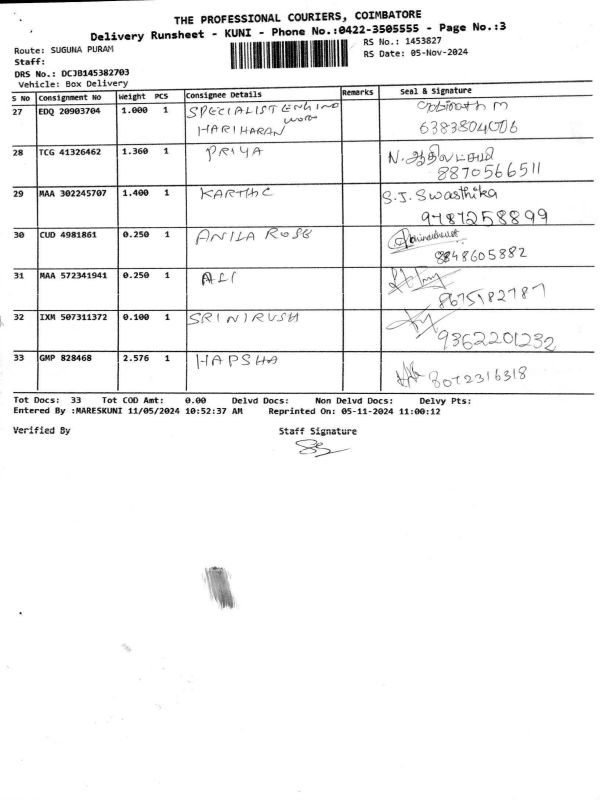 THE PROFESSIONAL COURIERS, COIMBATORE
Delivery Runsheet - KUNI - Phone No.:0422-3505555 - Page No.:3
Route: SUGUNA PURAM
RS No.: 1453827
Staff:
RS Date: 05-Nov-2024
DRS No.: DCJB145382703
Vehicle: Box Delivery
S No Consignment No Weight PCS Consignee Details Remarks Seal & Signature
27 EDQ 20903704 1.000 1 SPECIALIST ENGINO WORK Gobinath M
HARIHARAN 6383804006
28 TCG 41326462 1.360 1 PRIYA N. ஆதிலட்சுமி
8870566511
29 MAA 302245707 1.400 1 KARTHIC S.J. Swasthika
9787258899
30 CUD 4981861 0.250 1 ANILA ROSE
8848605882
31 MAA 572341941 0.250 1 ALI
8675182787
32 IXM 507311372 0.100 1 SRINIRUSH
9362201232
33 GMP 828468 2.576 1 HAPSHA
8072316318
Tot Docs: 33 Tot COD Amt: 0.00 Delvd Docs: Non Delvd Docs: Delvy Pts:
Entered By :MARESKUNI 11/05/2024 10:52:37 AM Reprinted On: 05-11-2024 11:00:12
Verified By Staff Signature